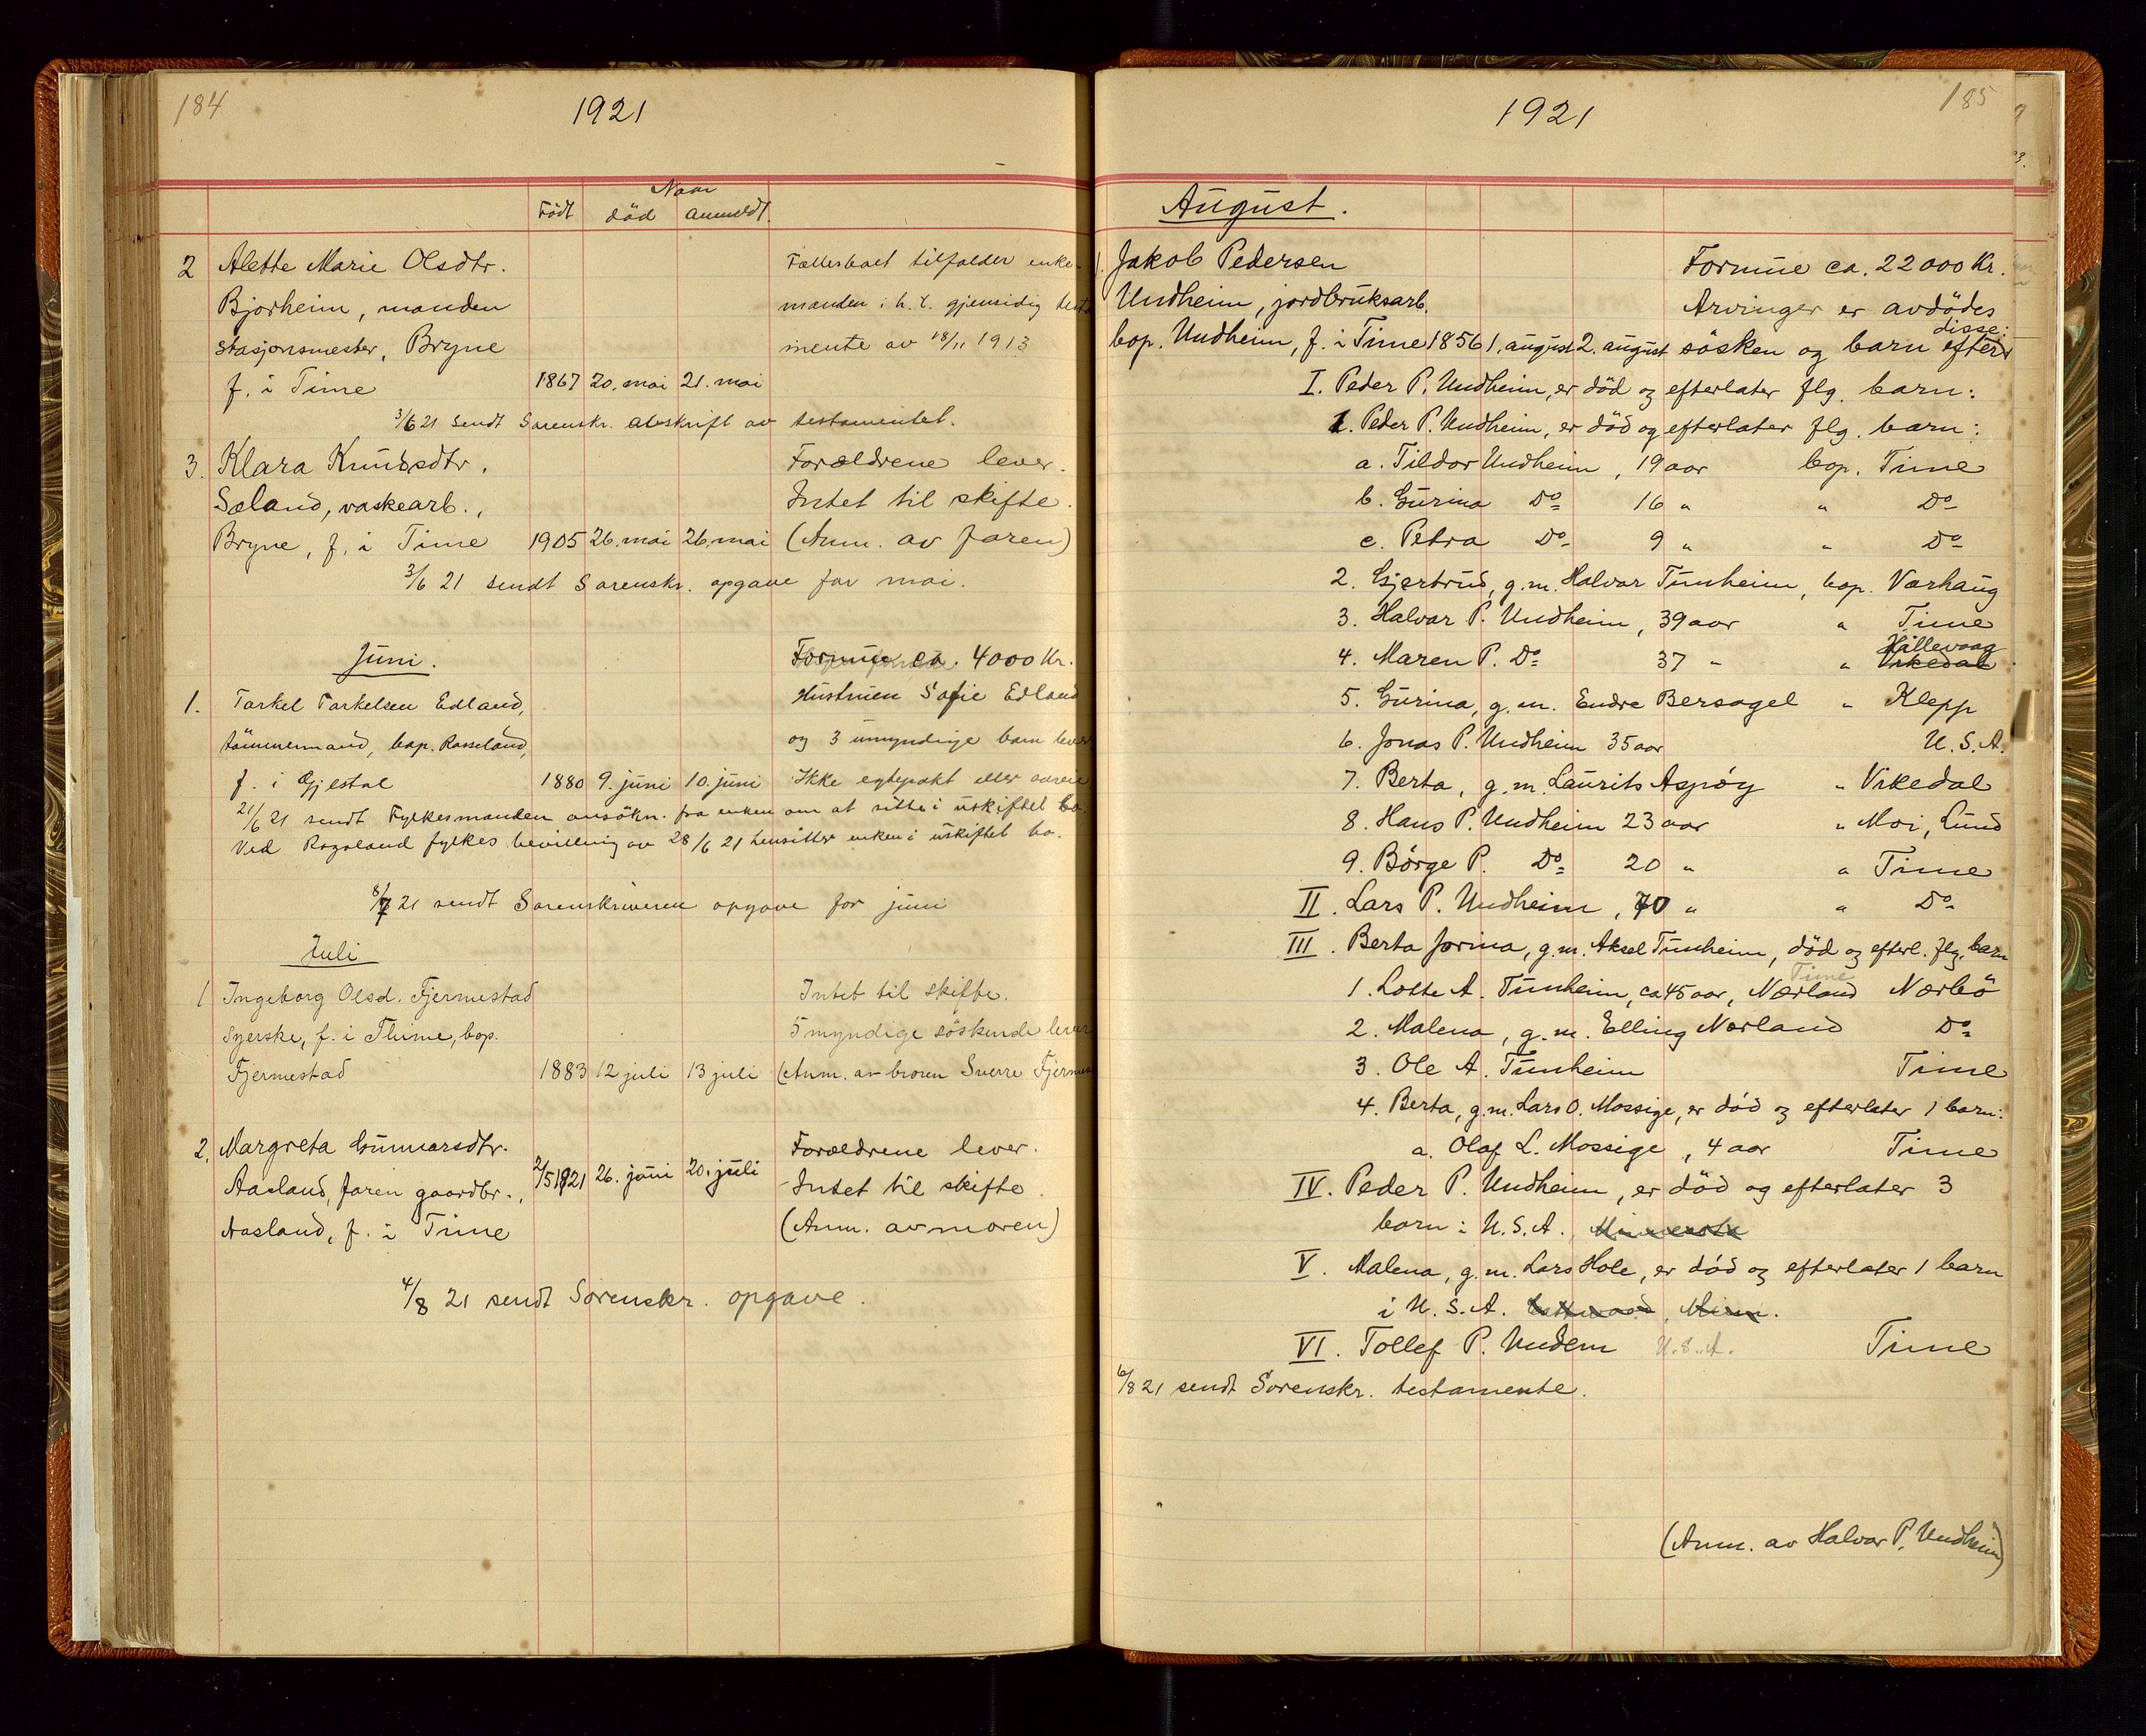 184
1921
Naar
Född död anmeldt.
2 Alette Marie Olsdtr. Fællesboet tilfalder enke-
Bjorheim, manden manden i h. t. gjensidig testa
stasjonsmester, Bryne mente av 18/11 1913
f. i Time 1867 20. mai 21. mai
3/6 21 sendt Sorenskr. avskrift av testamentet.
3. Klara Knudsdtr. Forældrene lever.
Sæland, vaskearb., Intet til skifte.
Bryne, f. i Time 1905 26. mai 26. mai (Anm. av faren)
3/6 21 sendt Sorenskr. opgave for mai.
Juni. Formue ca. 4000 Kr.
1. Torkel Torkelsen Edland, Hustruen Sofie Edland
tömmermand, bop. Rosseland, og 3 umyndige barn lever
f. i Gjestal 1880 9. juni 10. juni Ikke egtepakt eller
21/6 21 sendt Fylkesmanden ansökn. fra enken om at sitte i uskiftet bo.
Ved Rogaland fylkes bevilling av 28/6 21 hensitter enken i uskiftet bo.
8/7 21 sendt Sorenskriveren opgave for juni
Juli
1 Ingeborg Olsd. Fjermestad Intet til skifte.
syerske, f. i Thime, bop. 5 myndige söskende lever
Fjermestad 1883 12 juli 13 juli (Anm. av broren Sverre Fjermes
2. Margreta Gunnarsdtr. Forældrene lever.
Aasland, faren gaardbr., 2/5 1921 26. juni 20. juli Intet til skifte.
Aasland, f. i Time (Anm. av moren)
4/8 21 sendt Sorenskr. opgave.
185
1921
August.
1. Jakob Pedersen Formue ca. 22000 Kr.
Undheim, jordbruksarb. Arvinger er avdödes
disse:
bop. Undheim, f. i Time 1856 1. august 2. august sösken og barn efter
I. Peder P. Undheim, er död og efterlater flg. barn:
1. Peder P. Undheim, er död og efterlater flg. barn:
a. Tildor Undheim, 19 aar bop. Time
b. Gurina Do 16 " " Do
c. Petra Do 9 " " Do
2. Gjertrud, g. m. Halvar Tunheim, bop. Varhaug
3. Halvar P. Undheim, 39 aar " Time
Hillevaag
4. Maren P. Do 37 " " Vikedal
5. Gurina, g. m. Endre Bersagel " Klepp
6. Jonas P. Undheim 35 aar U. S. A.
7. Berta, g. m. Laurits Aspöy " Vikedal
8. Hans P. Undheim 23 aar " Moi, Lund
9. Börge P. Do 20 " " Time
II. Lars P. Undheim, 70 " " Do
III. Berta Jorina, g. m. Aksel Tunheim, död og efterl. flg. barn
Time
1. Lotte A. Tunheim, ca 45 aar, Nærland Nærbö
2. Malena, g. m. Elling Nærland Do
3. Ole A. Tunheim Time
4. Berta, g. m. Lars O. Mossige, er död og efterlater 1 barn:
a. Olaf L. Mossige, 4 aar Time
IV. Peder P. Undheim, er död og efterlater 3
barn i U. S. A. Minnesota
V. Malena, g. m. Lars Hole, er död og efterlater 1 barn
i U. S. A. Minn.
VI. Tollef P. Undem U. S. A. Time
6/8 21 sendt Sorenskr. testamente.
(Anm. av Halvar P. Undheim)